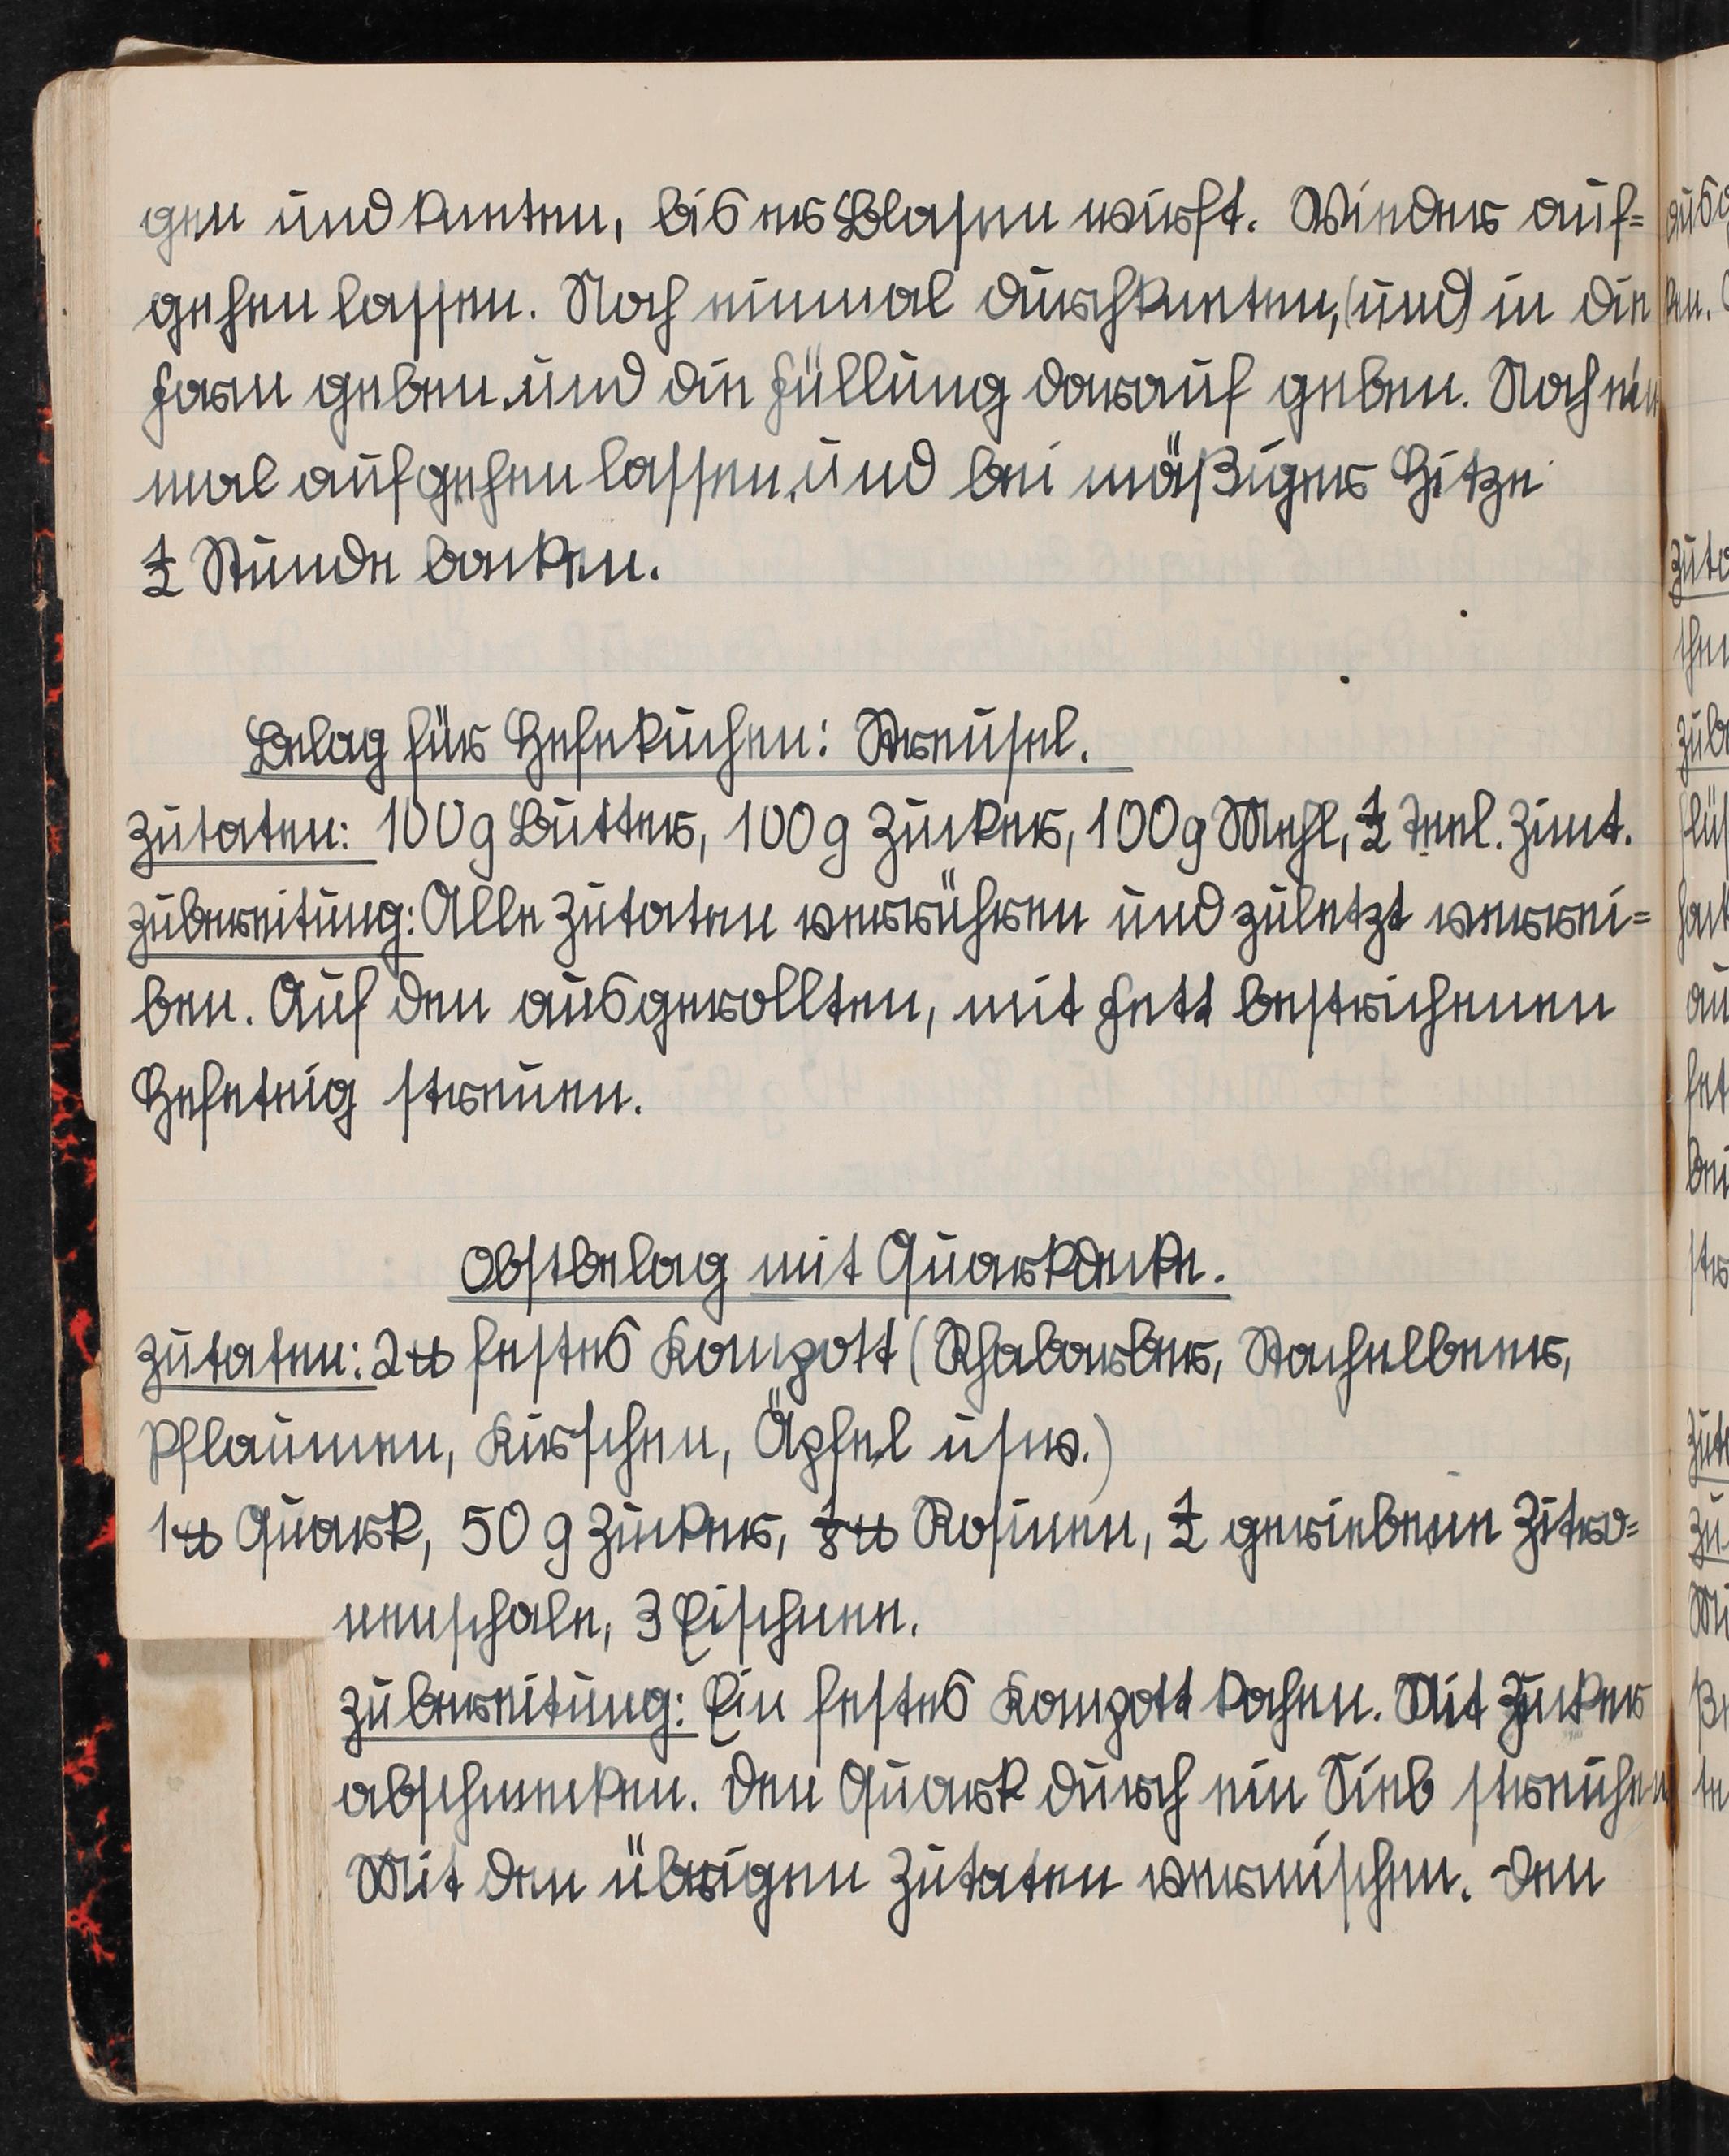 gen und kneten, bis er Blasen wirft. Wieder auf=
gehen lassen. Noch einmal durchkneten, (und) in die
Form geben und die Füllung darauf geben. Noch ein
mal aufgehen lassen, und bei mäßiger Hitze
½ Stunde backen.
Belag für Hefekuchen: Streusel.
Zutaten: 100 g Butter, 100 g Zucker, 100 g Mehl, ½ Teel. Zimt.
Zubereitung: Alle Zutaten verrühren und zuletzt verrei=
ben. Auf den ausgerollten, mit Fett bestrichenen
Hefeteig streuen.
Obstbelag mit Quarkdecke.
Zutaten: 2 ℔ festes Kompott (Rhabarber, Stachelbeer,
Pflaumen, Kirschen, Äpfel usw.)
1 ℔ Quark, 50 g Zucker, ⅛ ℔ Rosinen, ½ geriebene Zitro=
nenschale, 3 Eischnee.
Zubereitung: Ein festes Kompott kochen. Mit Zucker
abschmecken. Den Quark durch ein Sieb streichen
Mit den übrigen Zutaten vermischen. Den